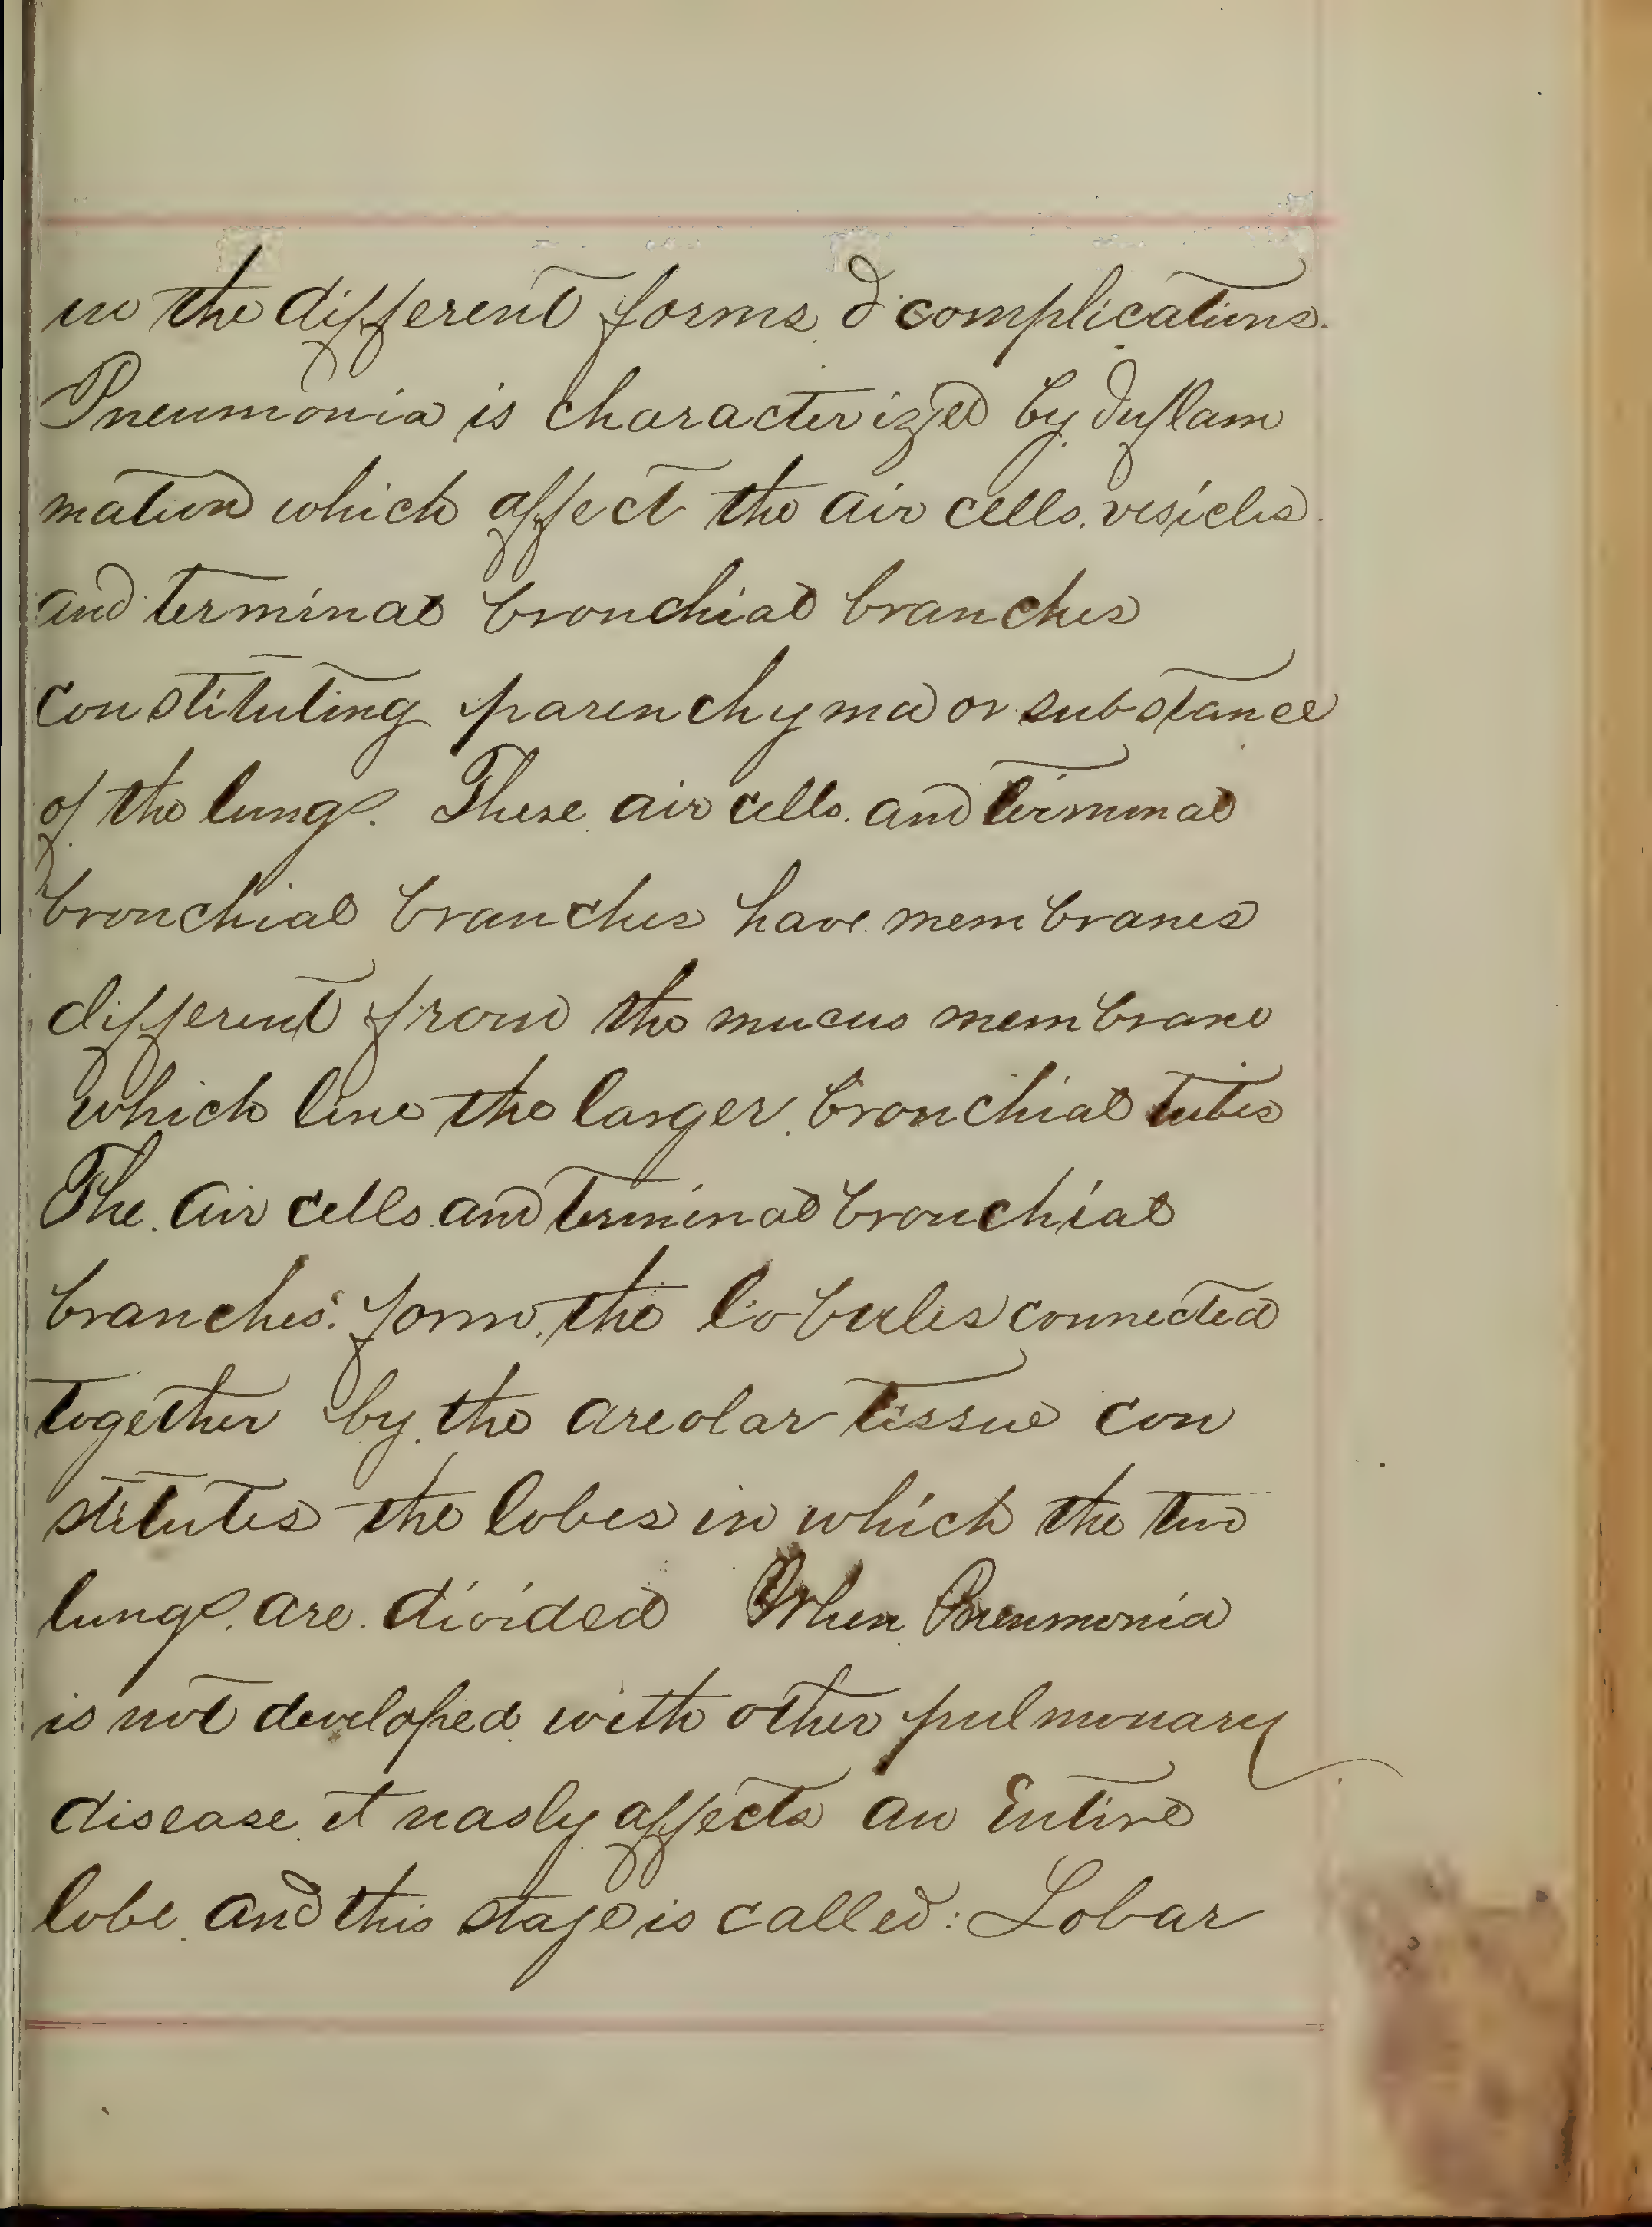 in the different forms & complications.
Pneumonia is characterized by Inflam
mation which affect the air cells. vesicles.
and terminal bronchial branches
constituting parenchyma or substance
of the lungs. These air cells. and terminal
bronchial branches have membranes
different from the mucus membrane
which line the larger bronchial tubes
The air cells and terminal bronchial
branches. form the lobules connected
together by the areolar tissue con
stitutes the lobes in which the two
lungs. are divided When Pneumonia
is not developed with other pulmonary
disease it affects an Entire
lobe and this stage is called: Lobar